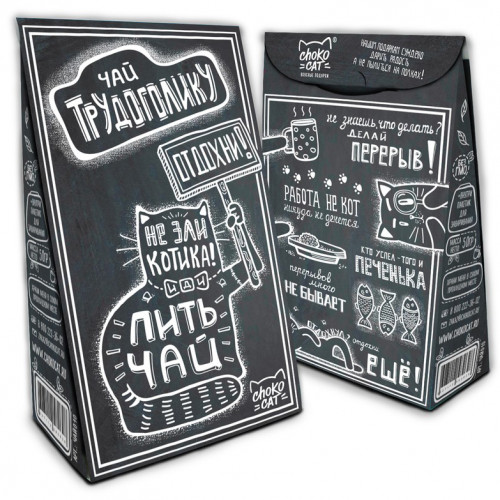 ЧАЙ
ТРУДОГОЛИКУ
ОТДОХНИ!
НЕ ЗЛИ
КОТИКА!
ИДИ
ПИТЬ
ЧАЙ
CHOKO
=CAT=
CHOKO
CAT
НАШИ ПОДАРКИ СУЖДЕНО
ДАРИТЬ РАДОСТЬ
А НЕ ПЫЛИТЬСЯ НА ПОЛКАХ!
не знаешь, что делать?
ДЕЛАЙ
ПЕРЕРЫВ!
РАБОТА НЕ КОТ
никуда не денется
КТО УСПЕЛ - ТОГО И
ПЕЧЕНЬКА
перерывов
много
НЕ БЫВАЕТ
отдохни
ЕЩЁ!
CHOKO
=CAT=
WWW.CHOKOCAT.RU
МАССА
НЕТТО
50 Г
WWW.CHOKOCAT.RU